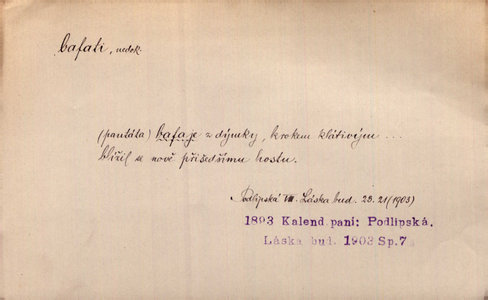 bafati, nedok.
(pantáta) bafaje z dýmky, krokem klátivým ...
blížil se nově přišedšímu hostu.
Podlipská VII. Láska bud. 25. 21 (1903)
1893 Kalend. paní: Podlipská.
Láska bud. 1903 Sp. 7